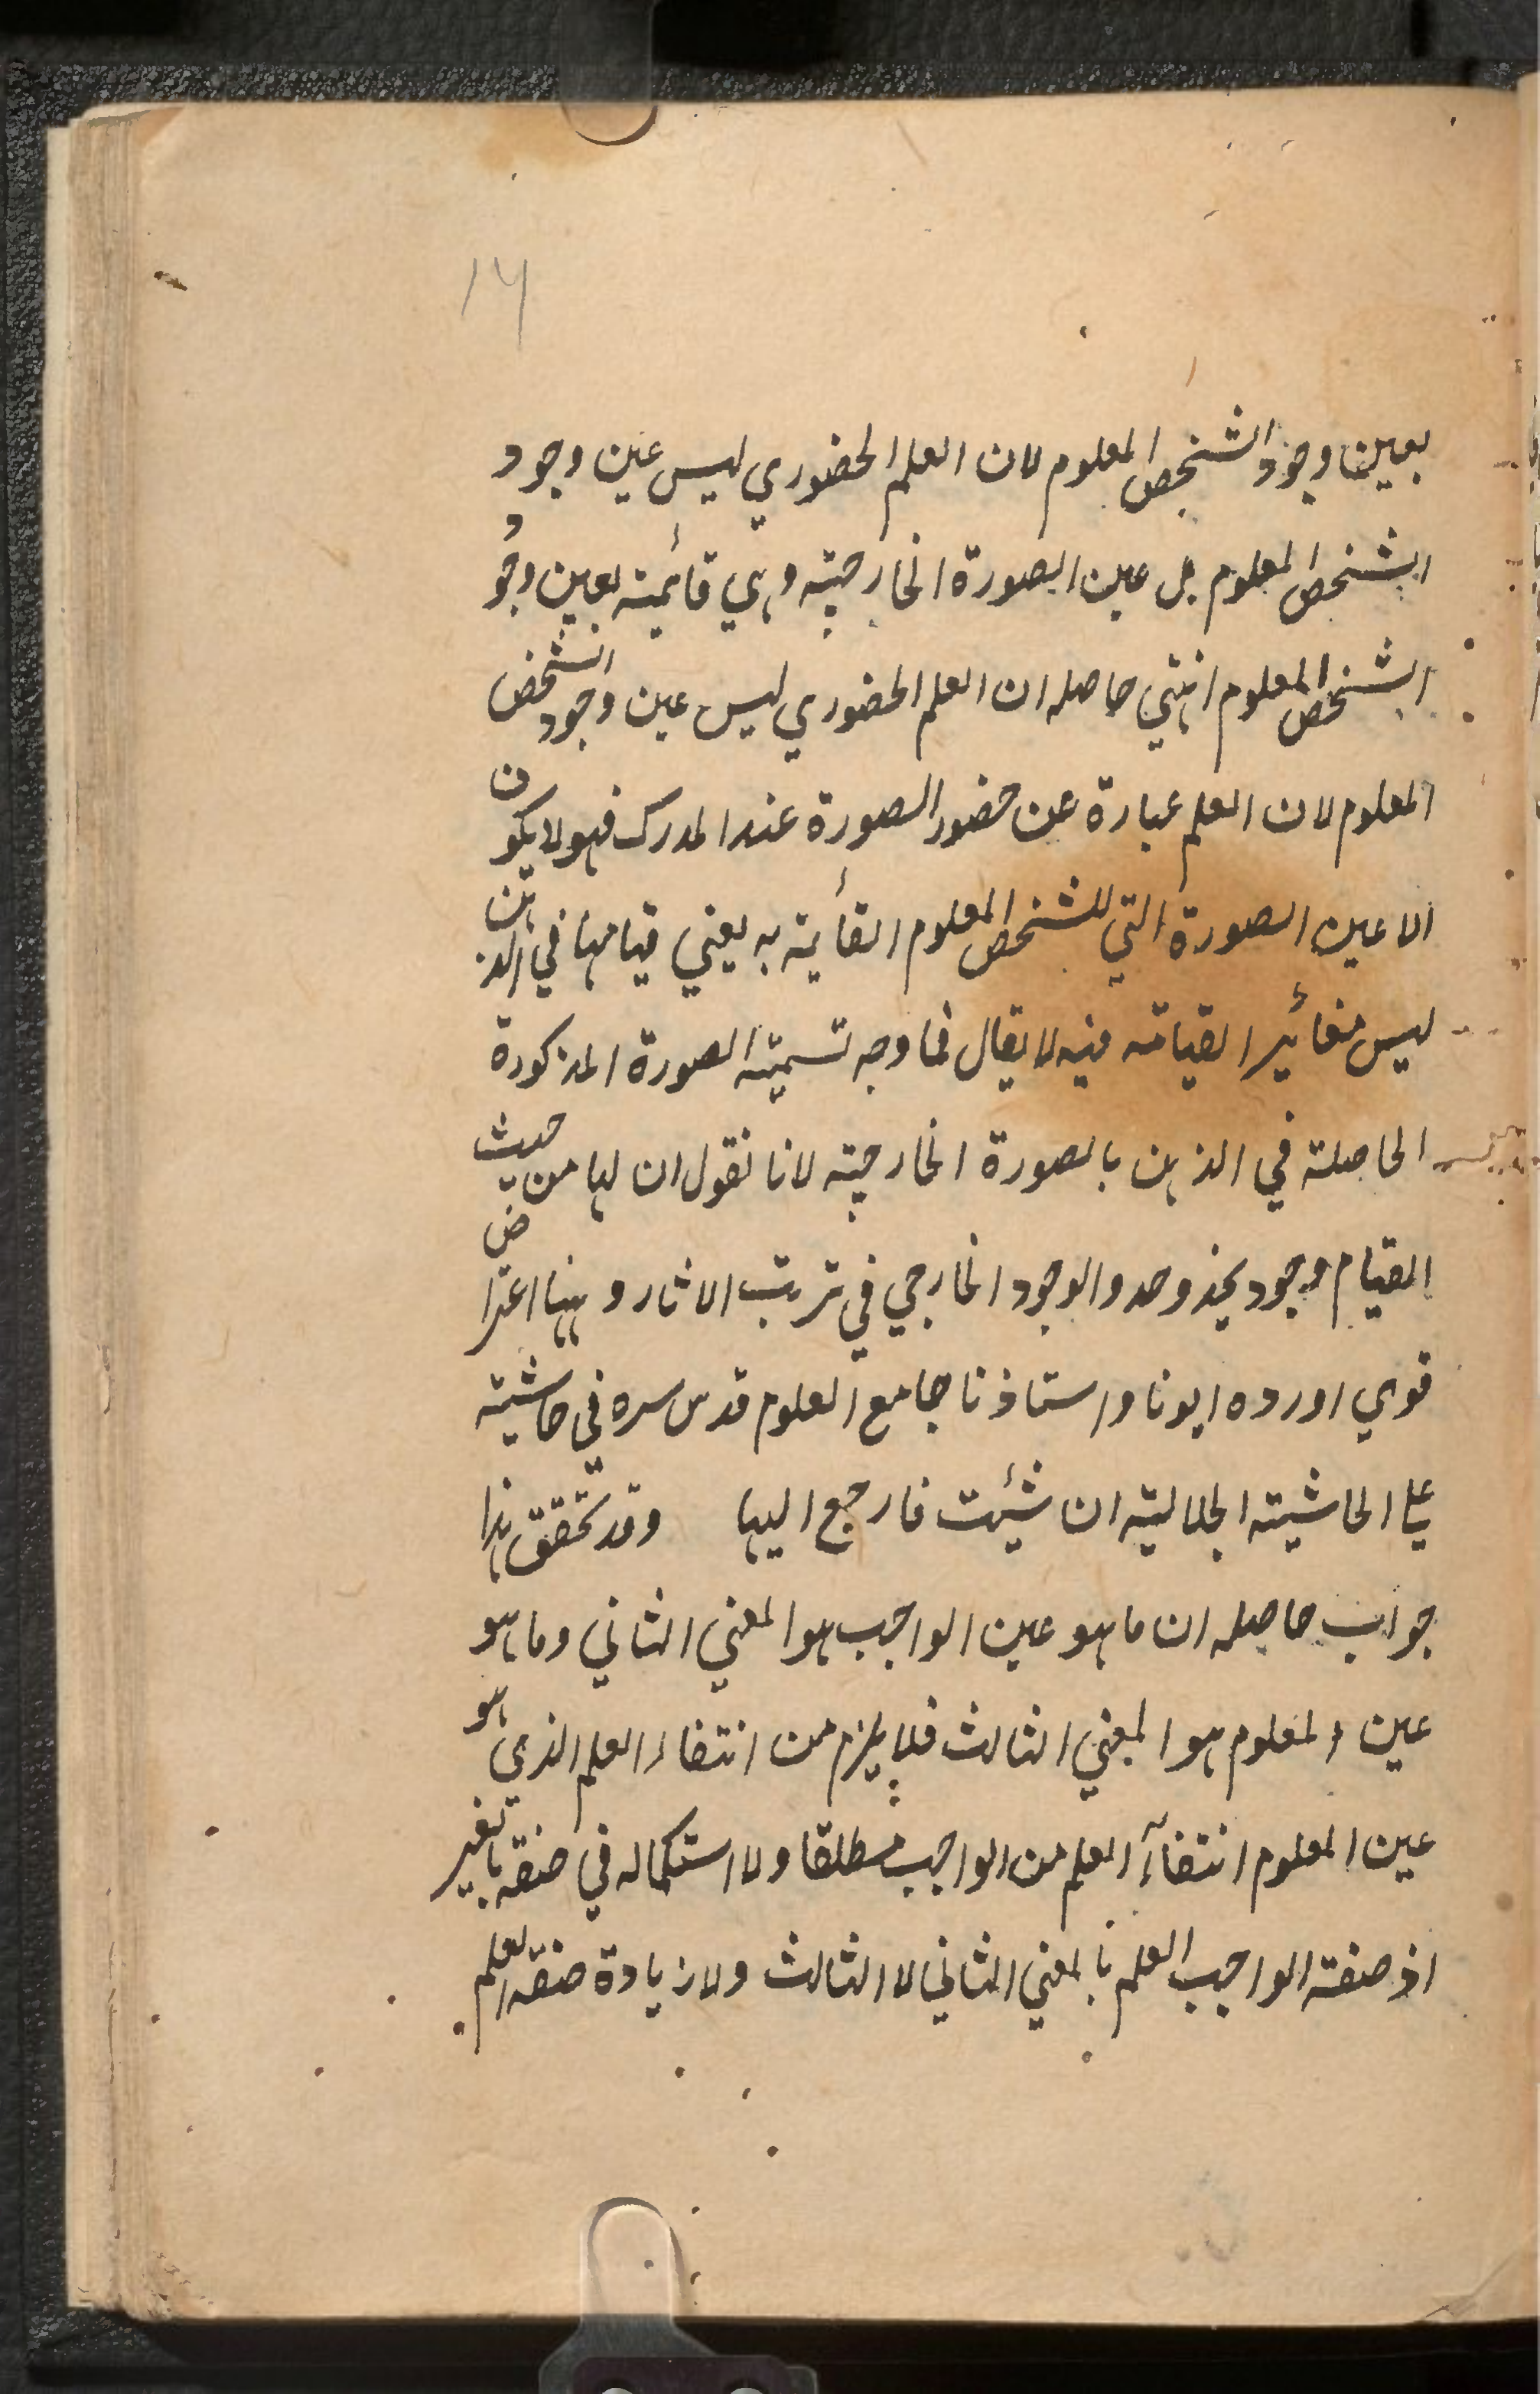 14
بعين وجود الشخص المعلوم لان العلم الحضوري ليس عين وجود
الشخص المعلوم بل عين الصورة الخارجية وهي قائمة بعين وجود
الشخص المعلوم انتهي حاصله ان العلم الحضوري ليس عين وجود الشخص
المعلوم لان العلم عبارة عن حضور الصورة عند المدرك فهو لا يكون
الا عين الصورة التي للشخص المعلوم القائمة به يعني قيامها في الذهن
ليس مغائير القيامه فيه لا يقال فما وجه تسمية الصورة المذكورة
الحاصلة في الذهن بالصورة الخارجية لانا نقول ان لها من حيث
القيام وجود يحذو حذو الوجود الخارجي في ترتب الاثار وههنا اعتراض
قوي اورده ابونا واستاذنا جامع العلوم قدس سره في حاشيته
علي الحاشية الجلالية ان شئت فارجع اليها وقد تحقق هذا
جواب حاصله ان ما هو عين الواجب هو المعني الثاني وما هو
عين المعلوم هو المعني الثالث فلا يلزم من انتفاء العلم الذي هو
عين المعلوم انتفآء العلم من الواجب مطلقا ولا استكماله في صفة بالغير
اذ صفة الواجب العلم بالمعني الثاني لا الثالث ولا زيادة صفة العلم